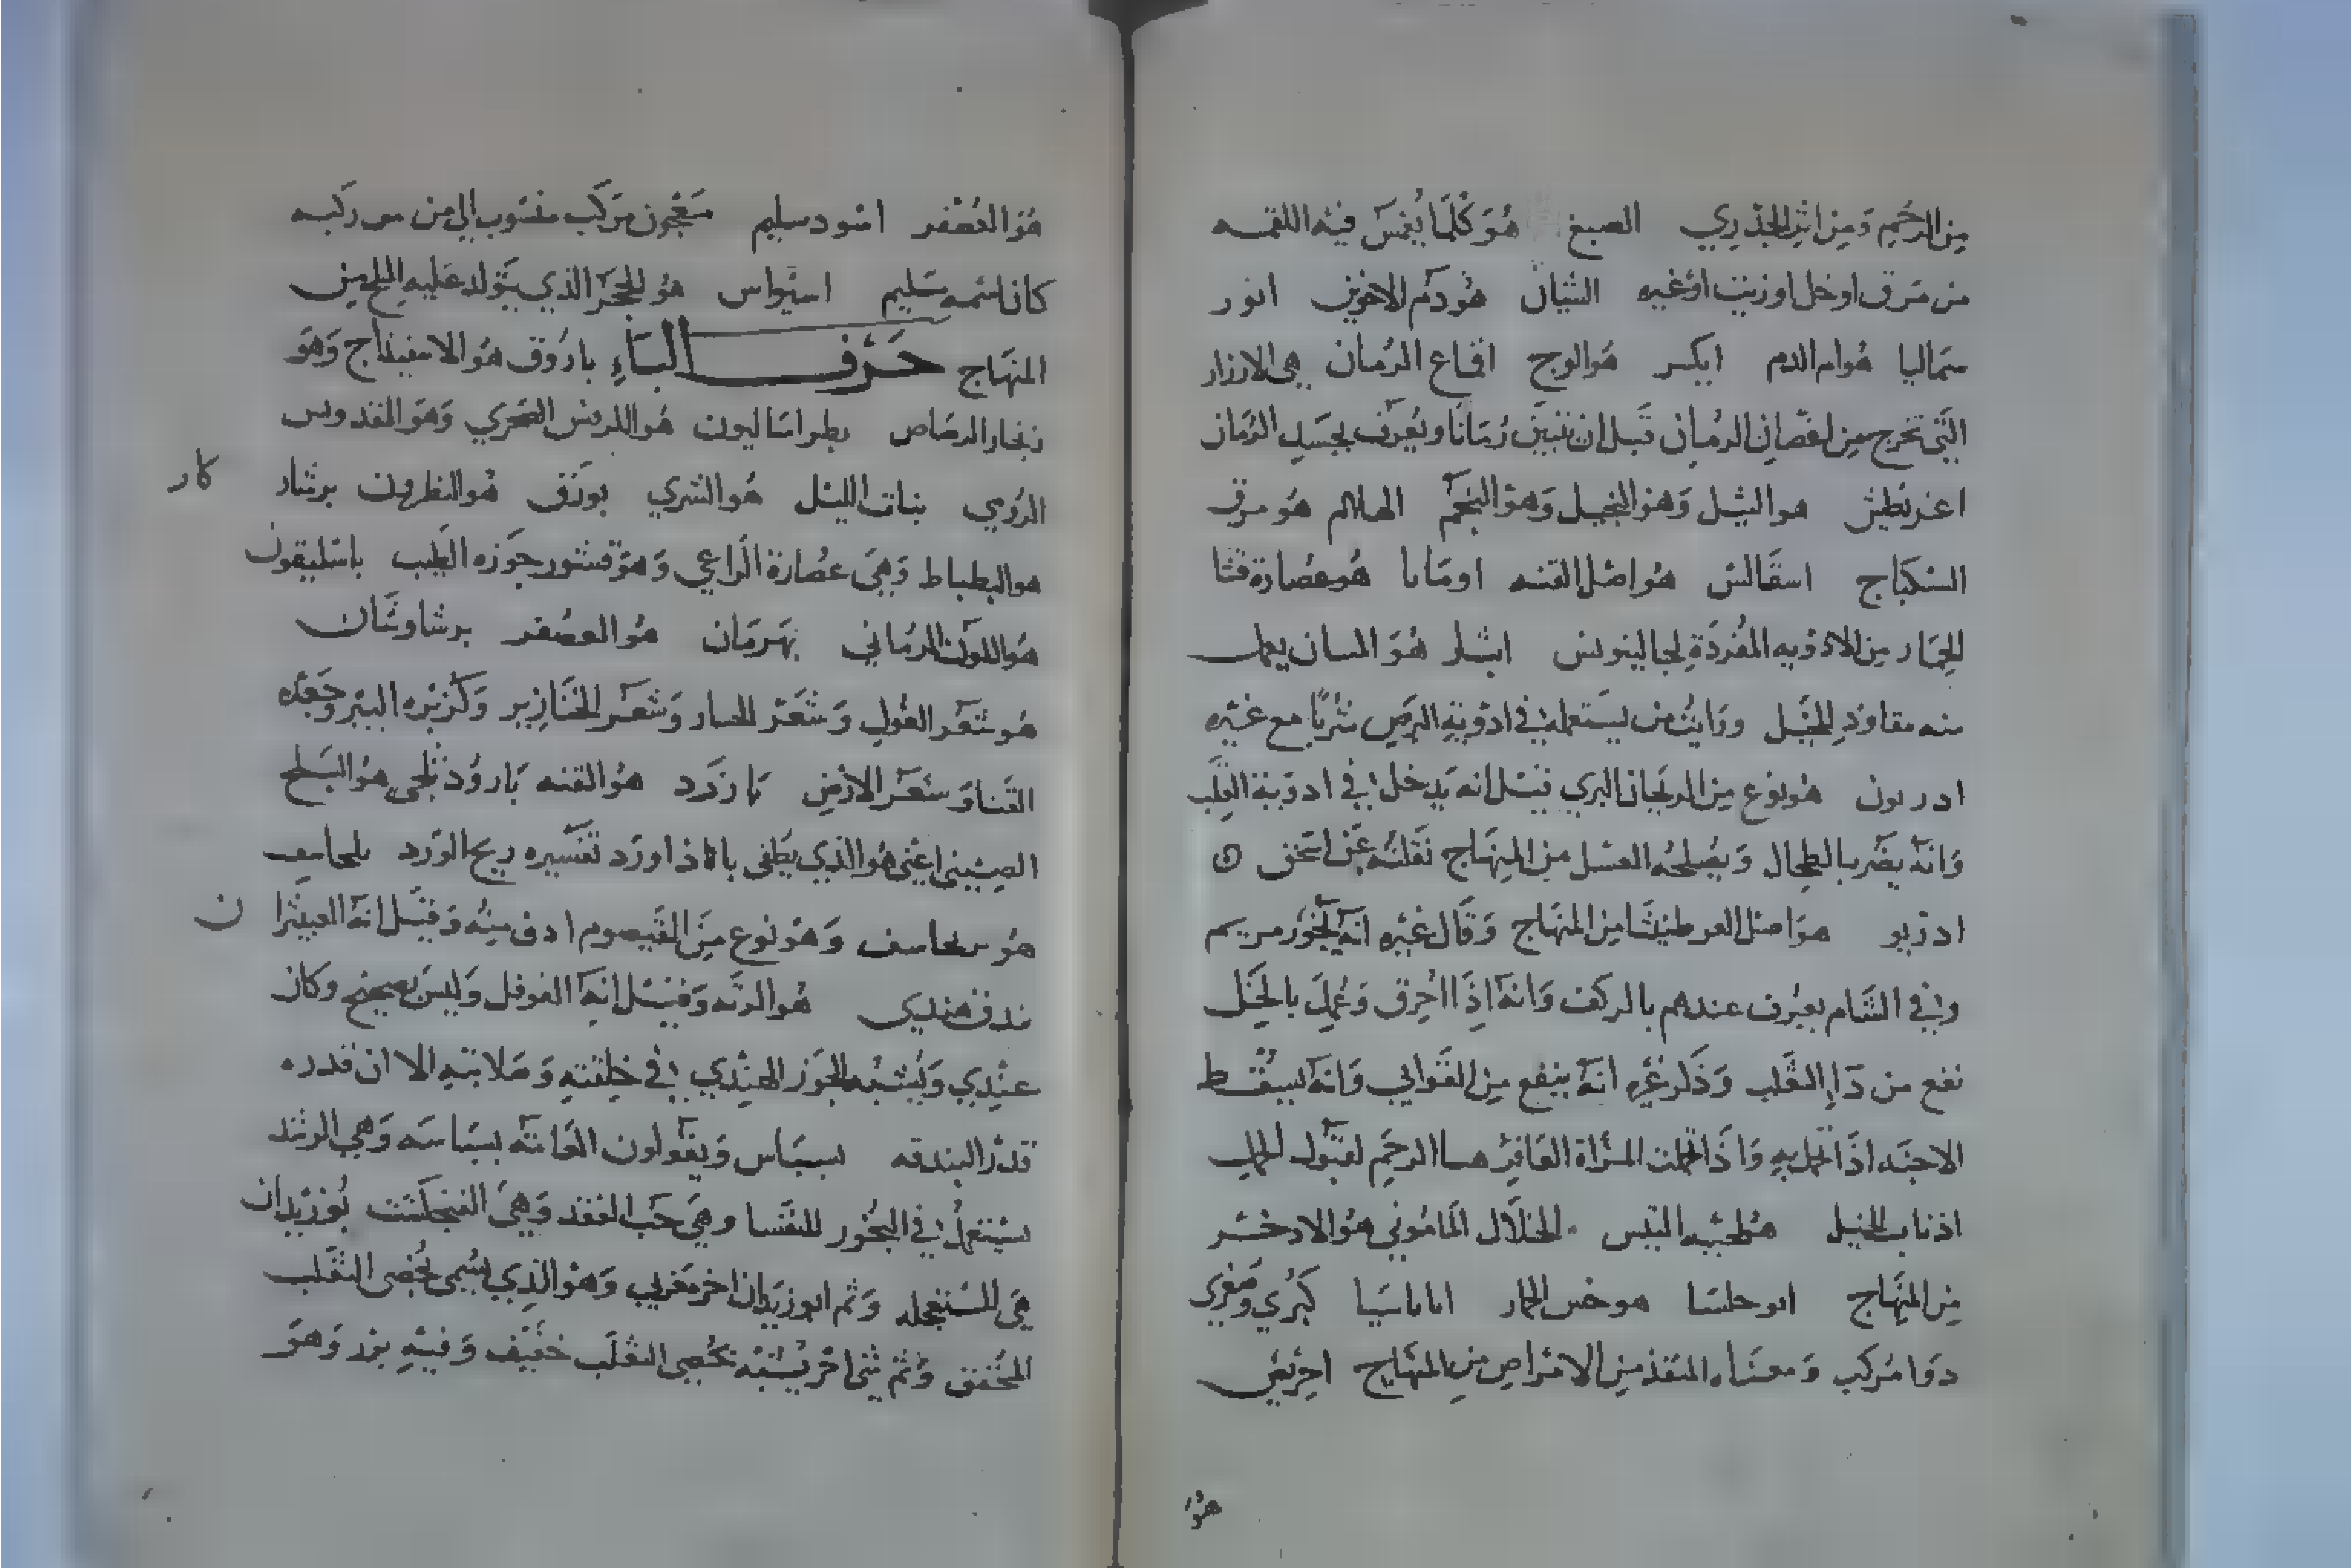 من الرحم ومن اثر الجدري الصبغ هو كلما يغمس فيه اللقمه
من مرق او خل او زيت او غيره الشيان هو دم الاخوين انور
سماليا هو ام الدم ايكر هو الوج اقماع الرمان هي الازرار
التي تخرج من اغصان الرمان قبل ان تتبين رمانا ويعرف بجسل الرمان
اغريطش هو الثيل وهو النجيل وهو النجم الهلام هو مرق
السكباج اسقالس هو اصل القنه اومانا هو عصارة قثا
الحمار من الادويه المفردة لجالينوس ابشلر هو المسان يعمل
منه مقاود للخيل ورايت من يستعمله في ادوية البرص شربا مع غيره
ادريون هو نوع من الريحان البري قيل انه يدخل في ادوية القلب
وانه يضر بالطحال ويصلحه العسل من المنهاج نقلته عن اسحق
اذربو هو اصل العرطنيثا من المنهاج وقال غيره انه بخور مريم
وفي الشام يعرف عندهم بالركف وانه اذا احرق وعمل بالخل
نفع من دا الثعلب وذكر غيره انه ينفع من القوابي وانه يسقط
الاجنه اذا تحمل به واذا تحملت المراة العاقر هيا الرحم لقبول الحمل
اذناب الخيل هو لحيه التيس الخلال الماموني هو الاذخر
من المنهاج ابو حلسا هو خس الحمار اناناسيا كبري وصغري
دوا مركب ومعناه المنقذ من الامراض من المنهاج احريض
هو
هو العصفر اسود سليم معجون مركب منسوب الي من ركبه
كان اسمه سليم اسيواس هو الحجر الذي يتولد عليه الملح من
المنهاج حرف الباء باروق هو الاسفيداج وهو
زنجار الرصاص بطراساليون هو الكرفس الصخري وهو المقدونس
الرومي بنات الليل هو الشري بورق هو النطرون برشنار كار
هو البطباط وهي عصارة الراعي وهو قشور جوزه الطيب باسليقون
هو اللون الرماني بهرمان هو العصفر برشاوشان
هو شعر الغول وشعر الجبار وشعر الخنازير وكزبره البير وجعده
القنا وشعر الارض بارزد هو القنه بارود ثلجي هو الملح
الصيني اعني هو الذي يطفي باداورد تفسيره ريح الورد بلنجاسف
هو برنجاسف وهو نوع من القيصوم ادق منه وقيل انه العبيثرا ن
بندق هندي هو الرته وقيل انه الفوفل وليس بصحيح وكان
عندي ويشبه الجوز الهندي في خلقته وصلابته الا ان قدره
قدر البندقه بسباس ويقولون العامه بسباسه وهي الرشد
يستعمل في البخور للنفسا وهي حب الفقد وهي الفنجنكشت بوزيدان
هي المستعجله وثم ابوزيدان اخر مغربي وهو الذي يسمي بخصي الثعلب
المخنق وثم شي اخر يشبه بخصي الثعلب خفيف وفيه برد وهو